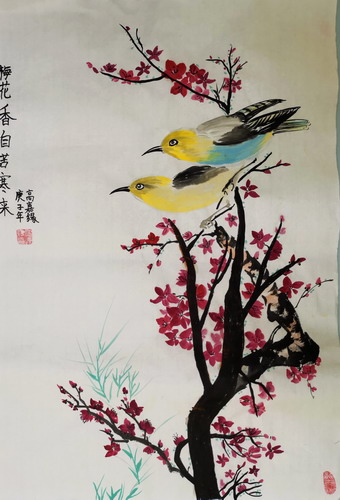 梅花香自苦寒来
高嘉鑀
庚子年